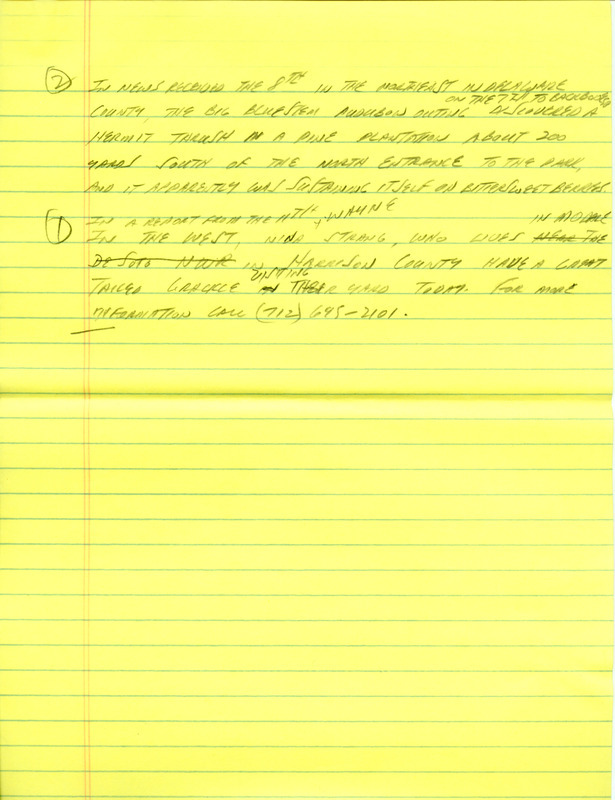 ② IN NEWS RECEIVED THE 8TH IN THE NORTHEAST IN DELAWARE
ON THE 7TH TO BACKBONE
COUNTY, THE BIG BLUESTEM AUDUBON OUTING DISCOVERED A
HERMIT THRUSH IN A PINE PLANTATION ABOUT 200
YARDS SOUTH OF THE NORTH ENTRANCE TO THE PARK,
AND IT APPARENTLY WAS SUSTAINING ITSELF ON BITTERSWEET BERRIES.
① IN A REPORT FROM THE 11TH, WAYNE
IN THE WEST, NINA STRANG, WHO LIVES NEAR THE
DESOTO NWR IN HARRISON COUNTY HAVE A GREAT
VISITING
TAILED GRACKLE IN THEIR YARD TODAY. FOR MORE
INFORMATION CALL (712) 645-2101.